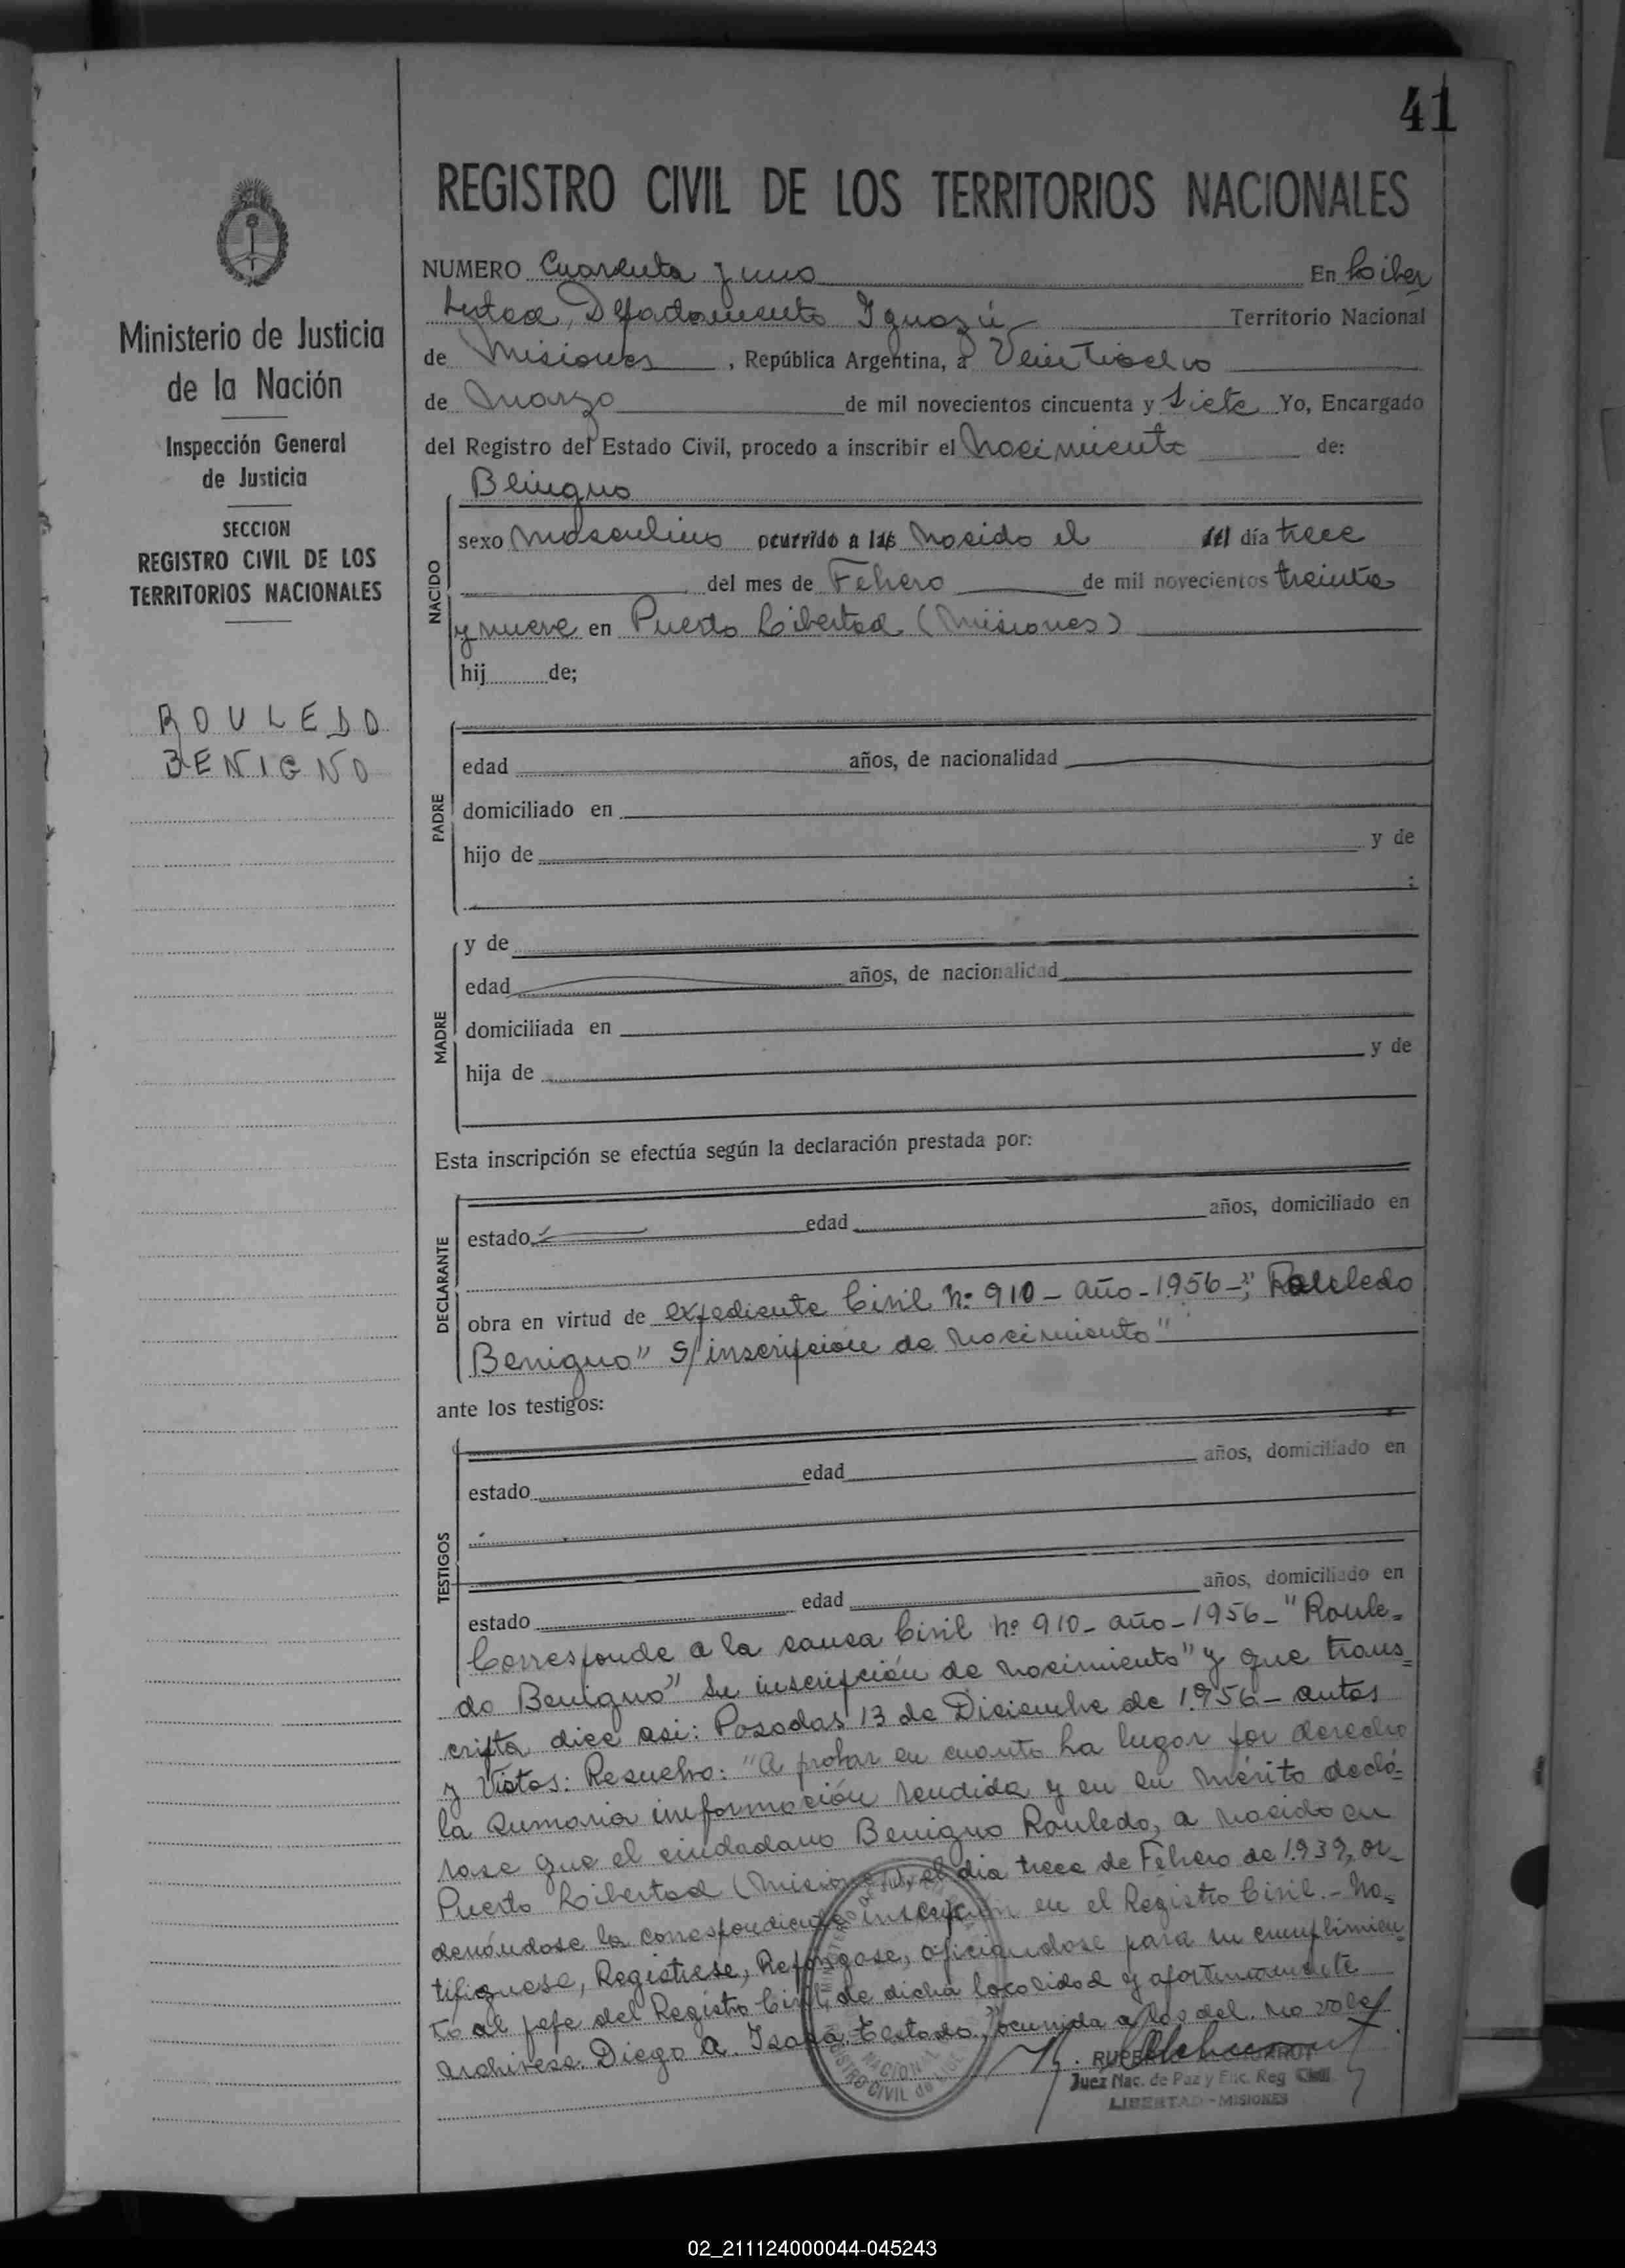 41
REGISTRO CIVIL DE LOS TERRITORIOS NACIONALES
Ministerio de Justicia
de la Nación
Inspección General
de Justicia
SECCION
REGISTRO CIVIL DE LOS
TERRITORIOS NACIONALES
ROULEDO
BENIGNO
NUMERO Cuarenta y uno En Liber
tad, Departamento Iguazú Territorio Nacional
de Misiones, República Argentina, a Veintiocho
de Marzo de mil novecientos cincuenta y siete Yo, Encargado
del Registro del Estado Civil, procedo a inscribir el Nacimiento de:
Benigno
NACIDO
sexo Masculino ocurrido a las Nacido el del día trece
del mes de Febrero de mil novecientos treinta
y nueve en Puerto Libertad (Misiones)
hij de;
PADRE
edad años, de nacionalidad
domiciliado en
hijo de y de
:
MADRE
y de
edad años, de nacionalidad
domiciliada en
hija de y de
Esta inscripción se efectúa según la declaración prestada por:
DECLARANTE
estado edad años, domiciliado en
obra en virtud de expediente Civil Nº 910 - año - 1956 -; "Rouledo
Benigno" S/inscripción de Nacimiento"
ante los testigos:
TESTIGOS
estado edad años, domiciliado en
estado edad años, domiciliado en
Corresponde a la causa Civil Nº 910 - año - 1956 - "Roule=
do Benigno" su inscripción de Nacimiento" y que trans=
cripta dice asi: Posadas 13 de Diciembre de 1956 - autos
y Vistos: Resuelvo: "A probar en cuanto ha lugar por derecho
la sumaria información rendida y en su mérito declá=
rase que el ciudadano Benigno Rouledo, a nacido en
Puerto Libertad (Misiones), el dia trece de Febrero de 1939, or_
denándose la correspondiente inscripción en el Registro Civil. - No=
tifiquese, Registrese, Repóngase, oficiandose para su cumplimien_
to al jefe del Registro Civil, de dicha localidad y oportunamente
Archivese. Diego A. Isasa Testado, "ocurrida a las del. no vale
REGISTRO CIVIL
NACIONAL
Juez Nac. de Paz y Enc. Reg Civil
LIBERTAD - MISIONES
02_211124000044-045243